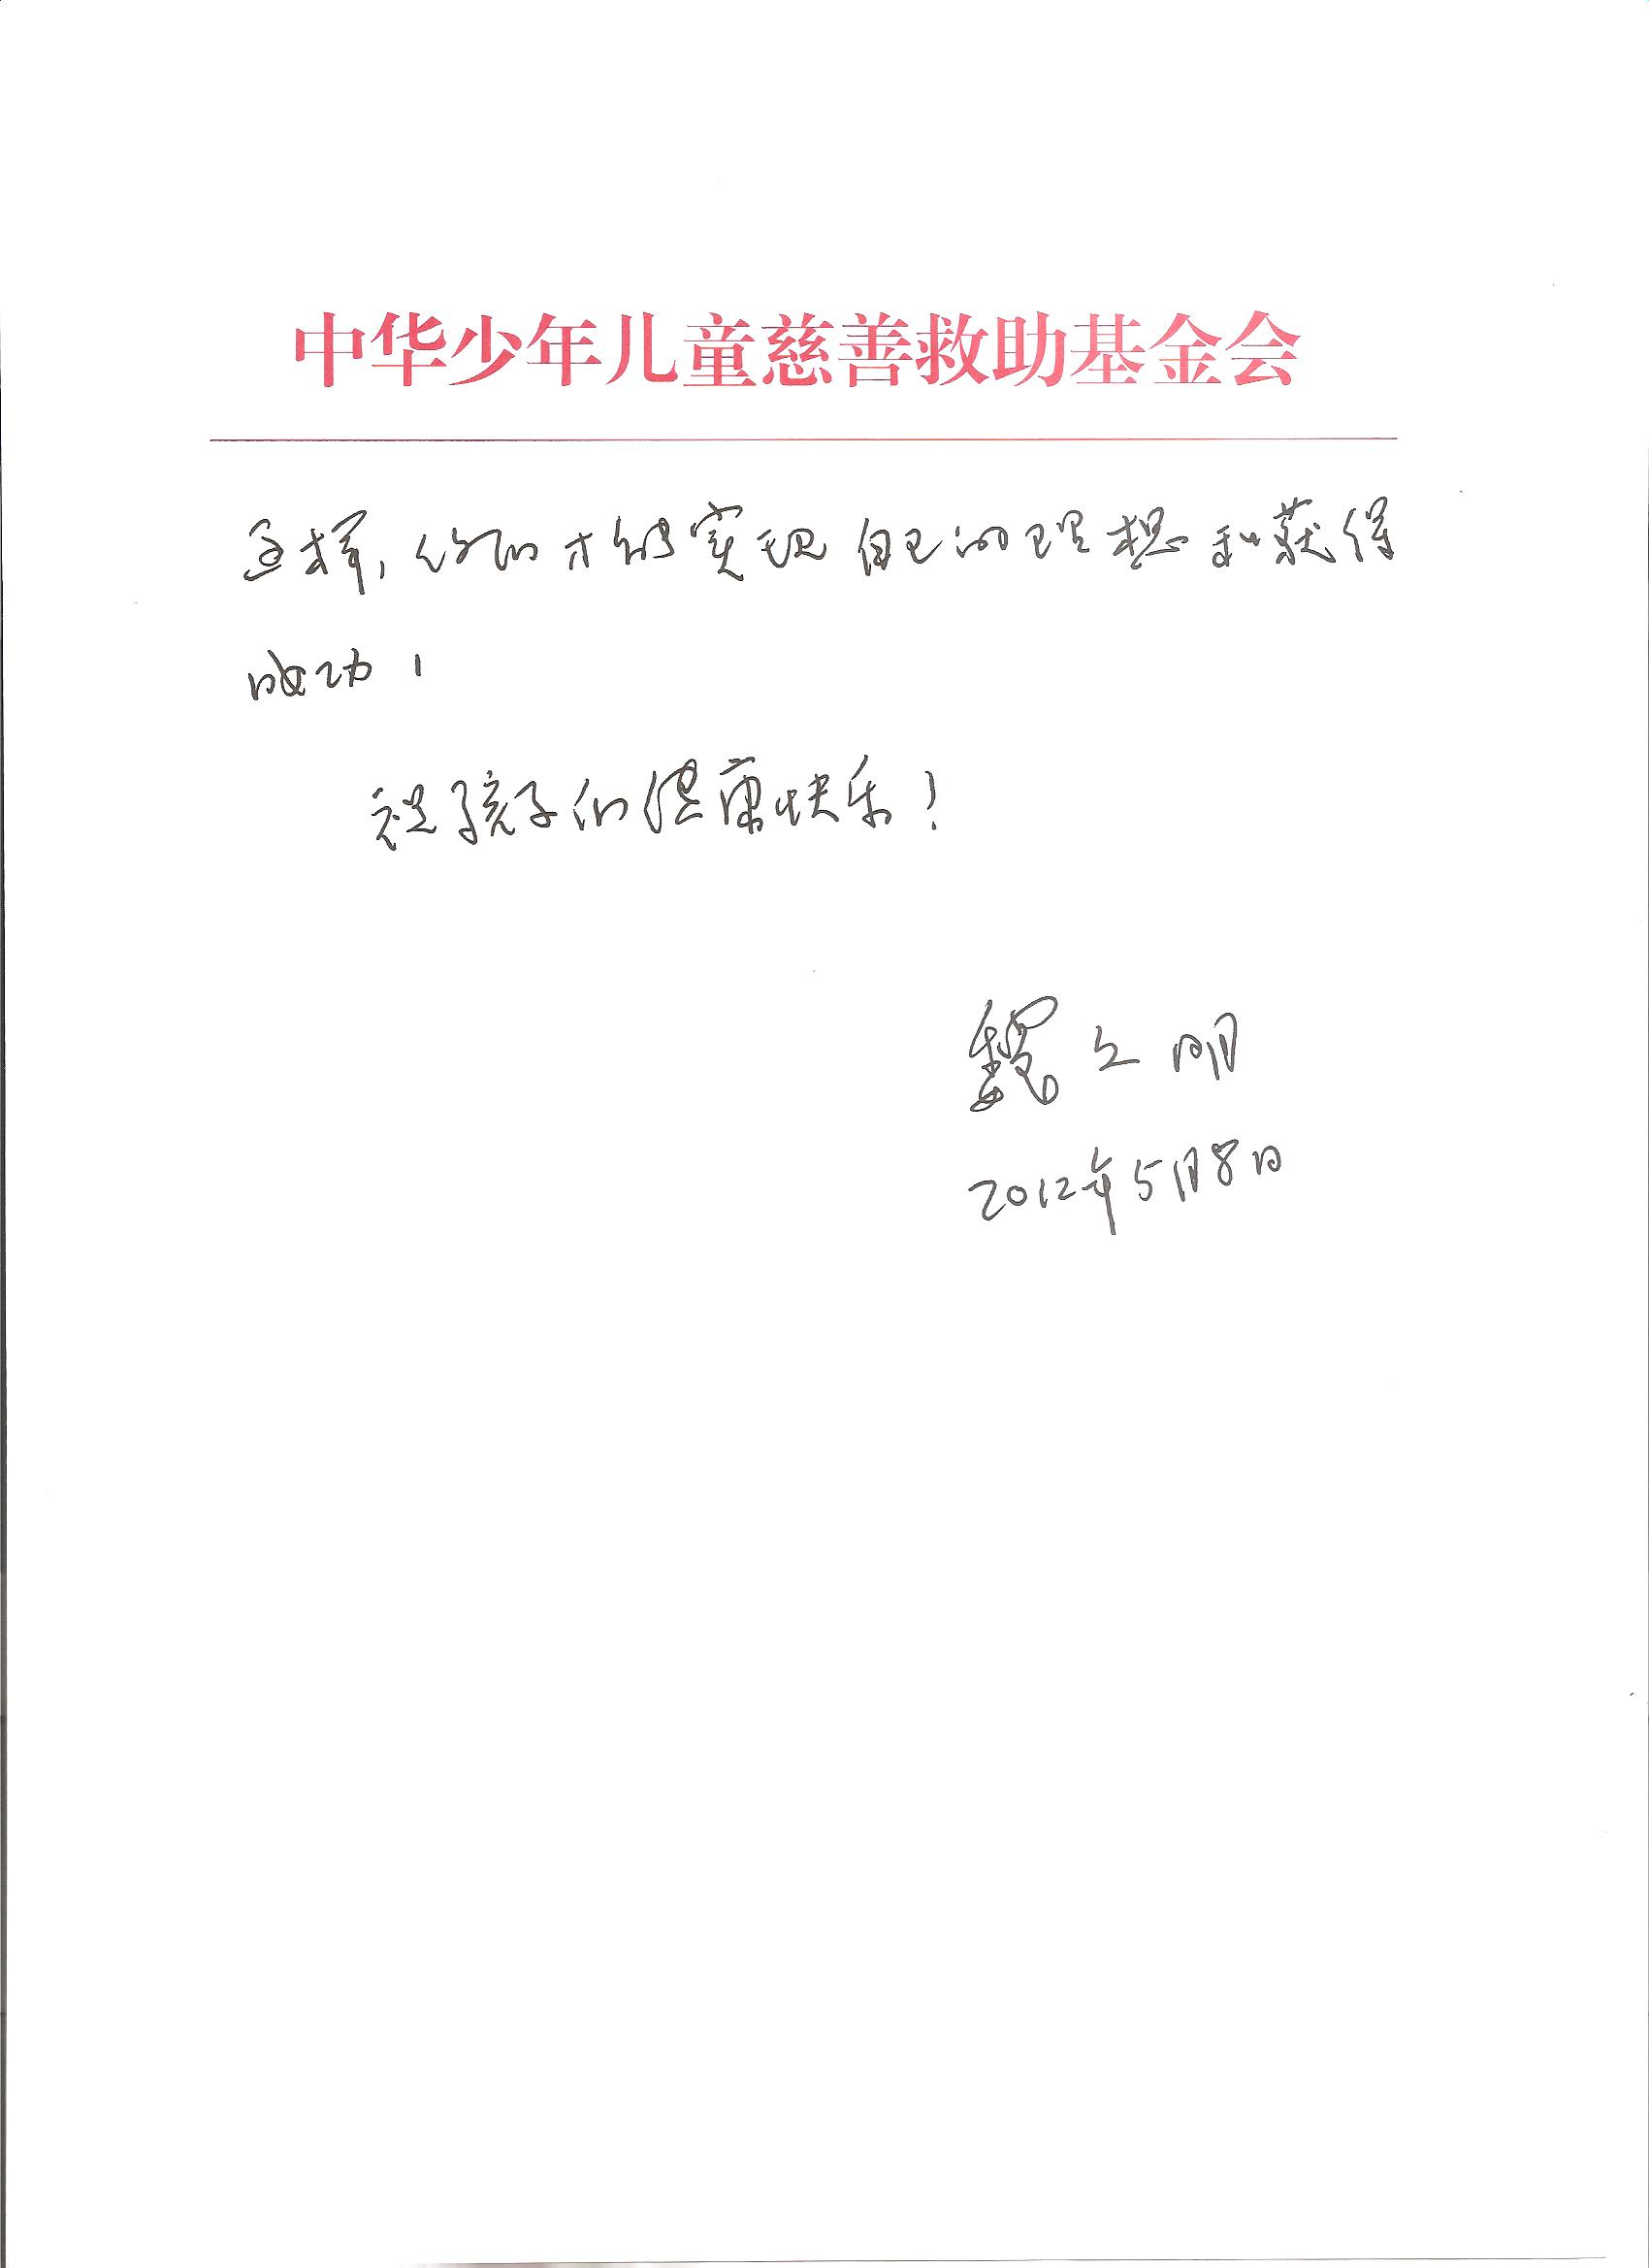 中华少年儿童慈善救助基金会
这样，你们才能实现自己的理想和获得
成功！
祝孩子们健康快乐！
魏久明
2012年5月8日